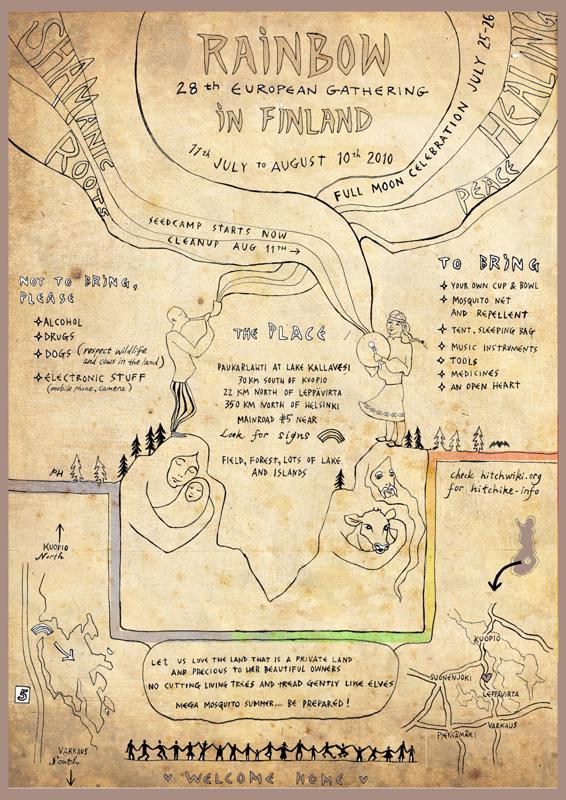 RAINBOW
28th EUROPEAN GATHERING
IN FINLAND
11th JULY TO AUGUST 10th 2010
FULL MOON CELEBRATION JULY 25-26
SHAMANIC
ROOTS
HEALING
PEACE
SEEDCAMP STARTS NOW
CLEANUP AUG 11TH →
NOT TO BRING,
PLEASE
ALCOHOL
DRUGS
DOGS (respect wildlife
and cows in the land)
ELECTRONIC STUFF
(mobile phone, camera)
THE PLACE
PAUKARLAHTI AT LAKE KALLAVESI
30 KM SOUTH OF KUOPIO
22 KM NORTH OF LEPPÄVIRTA
350 KM NORTH OF HELSINKI
MAINROAD #5 NEAR
Look for signs
FIELD, FOREST, LOTS OF LAKE
AND ISLANDS
TO BRING
YOUR OWN CUP & BOWL
MOSQUITO NET
AND REPELLENT
TENT, SLEEPING BAG
MUSIC INSTRUMENTS
TOOLS
MEDICINES
AN OPEN HEART
check hitchwiki.org
for hitchike-info
PH
KUOPIO
North
5
VARKAUS
South
LET US LOVE THE LAND THAT IS A PRIVATE LAND
AND PRECIOUS TO HER BEAUTIFUL OWNERS
NO CUTTING LIVING TREES AND TREAD GENTLY LIKE ELVES
MEGA MOSQUITO SUMMER... BE PREPARED!
KUOPIO
SUONENJOKI
LEPPÄVIRTA
VARKAUS
PIEKSÄMÄKI
WELCOME HOME